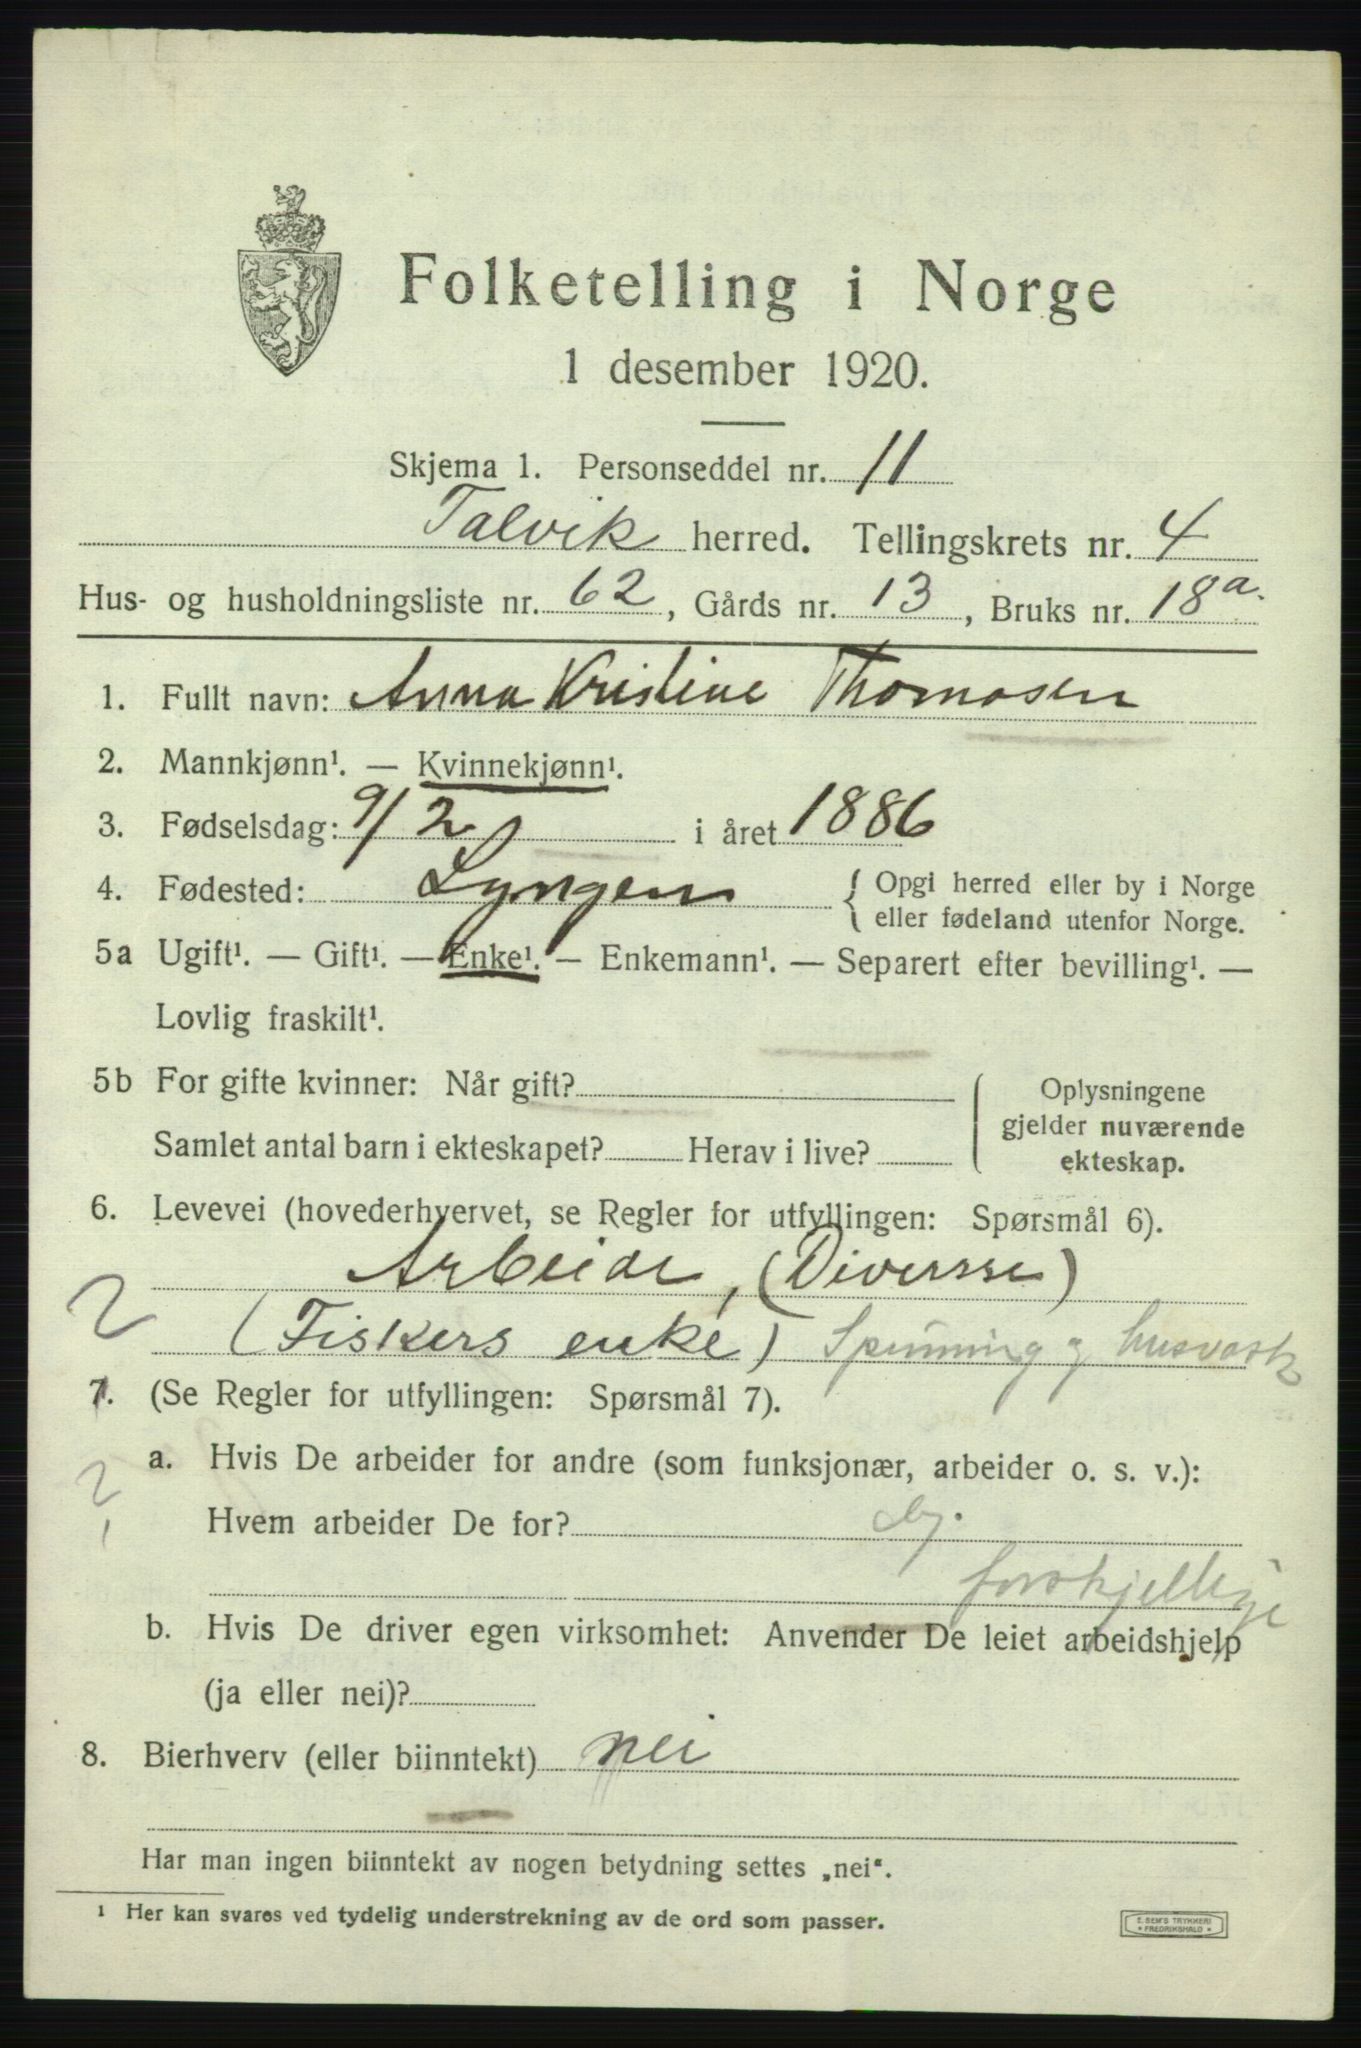 Folketelling i Norge
1 desember 1920.
Skjema 1. Personseddel nr. 11
Talvik herred. Tellingskrets nr. 4
Hus- og husholdningsliste nr. 62, Gårds nr. 13, Bruks nr. 18a.
1. Fullt navn: Anna Kristine Thomasen
2. Mannkjønn¹. — Kvinnekjønn¹.
3. Fødselsdag: 9/2 i året 1886
4. Fødested: Lyngen { Opgi herred eller by i Norge
eller fødeland utenfor Norge.
5a Ugift¹. — Gift¹. — Enke¹. — Enkemann¹. — Separert efter bevilling¹. —
Lovlig fraskilt¹.
5b For gifte kvinner: Når gift?
Samlet antal barn i ekteskapet? Herav i live?
Oplysningene
gjelder nuværende
ekteskap.
6. Levevei (hovederhvervet, se Regler for utfyllingen: Spørsmål 6).
Arbeide, (Diversse)
2 (Fiskers enke) Spinning og husvask
7. (Se Regler for utfyllingen: Spørsmål 7).
a. Hvis De arbeider for andre (som funksjonær, arbeider o. s. v.):
Hvem arbeider De for?
forskjellige
b. Hvis De driver egen virksomhet: Anvender De leiet arbeidshjelp
(ja eller nei)?
8. Bierhverv (eller biinntekt) nei
Har man ingen biinntekt av nogen betydning settes „nei“.
¹ Her kan svares ved tydelig understrekning av de ord som passer.
E. SEM'S TRYKKERI
* FREDRIKSHALD *